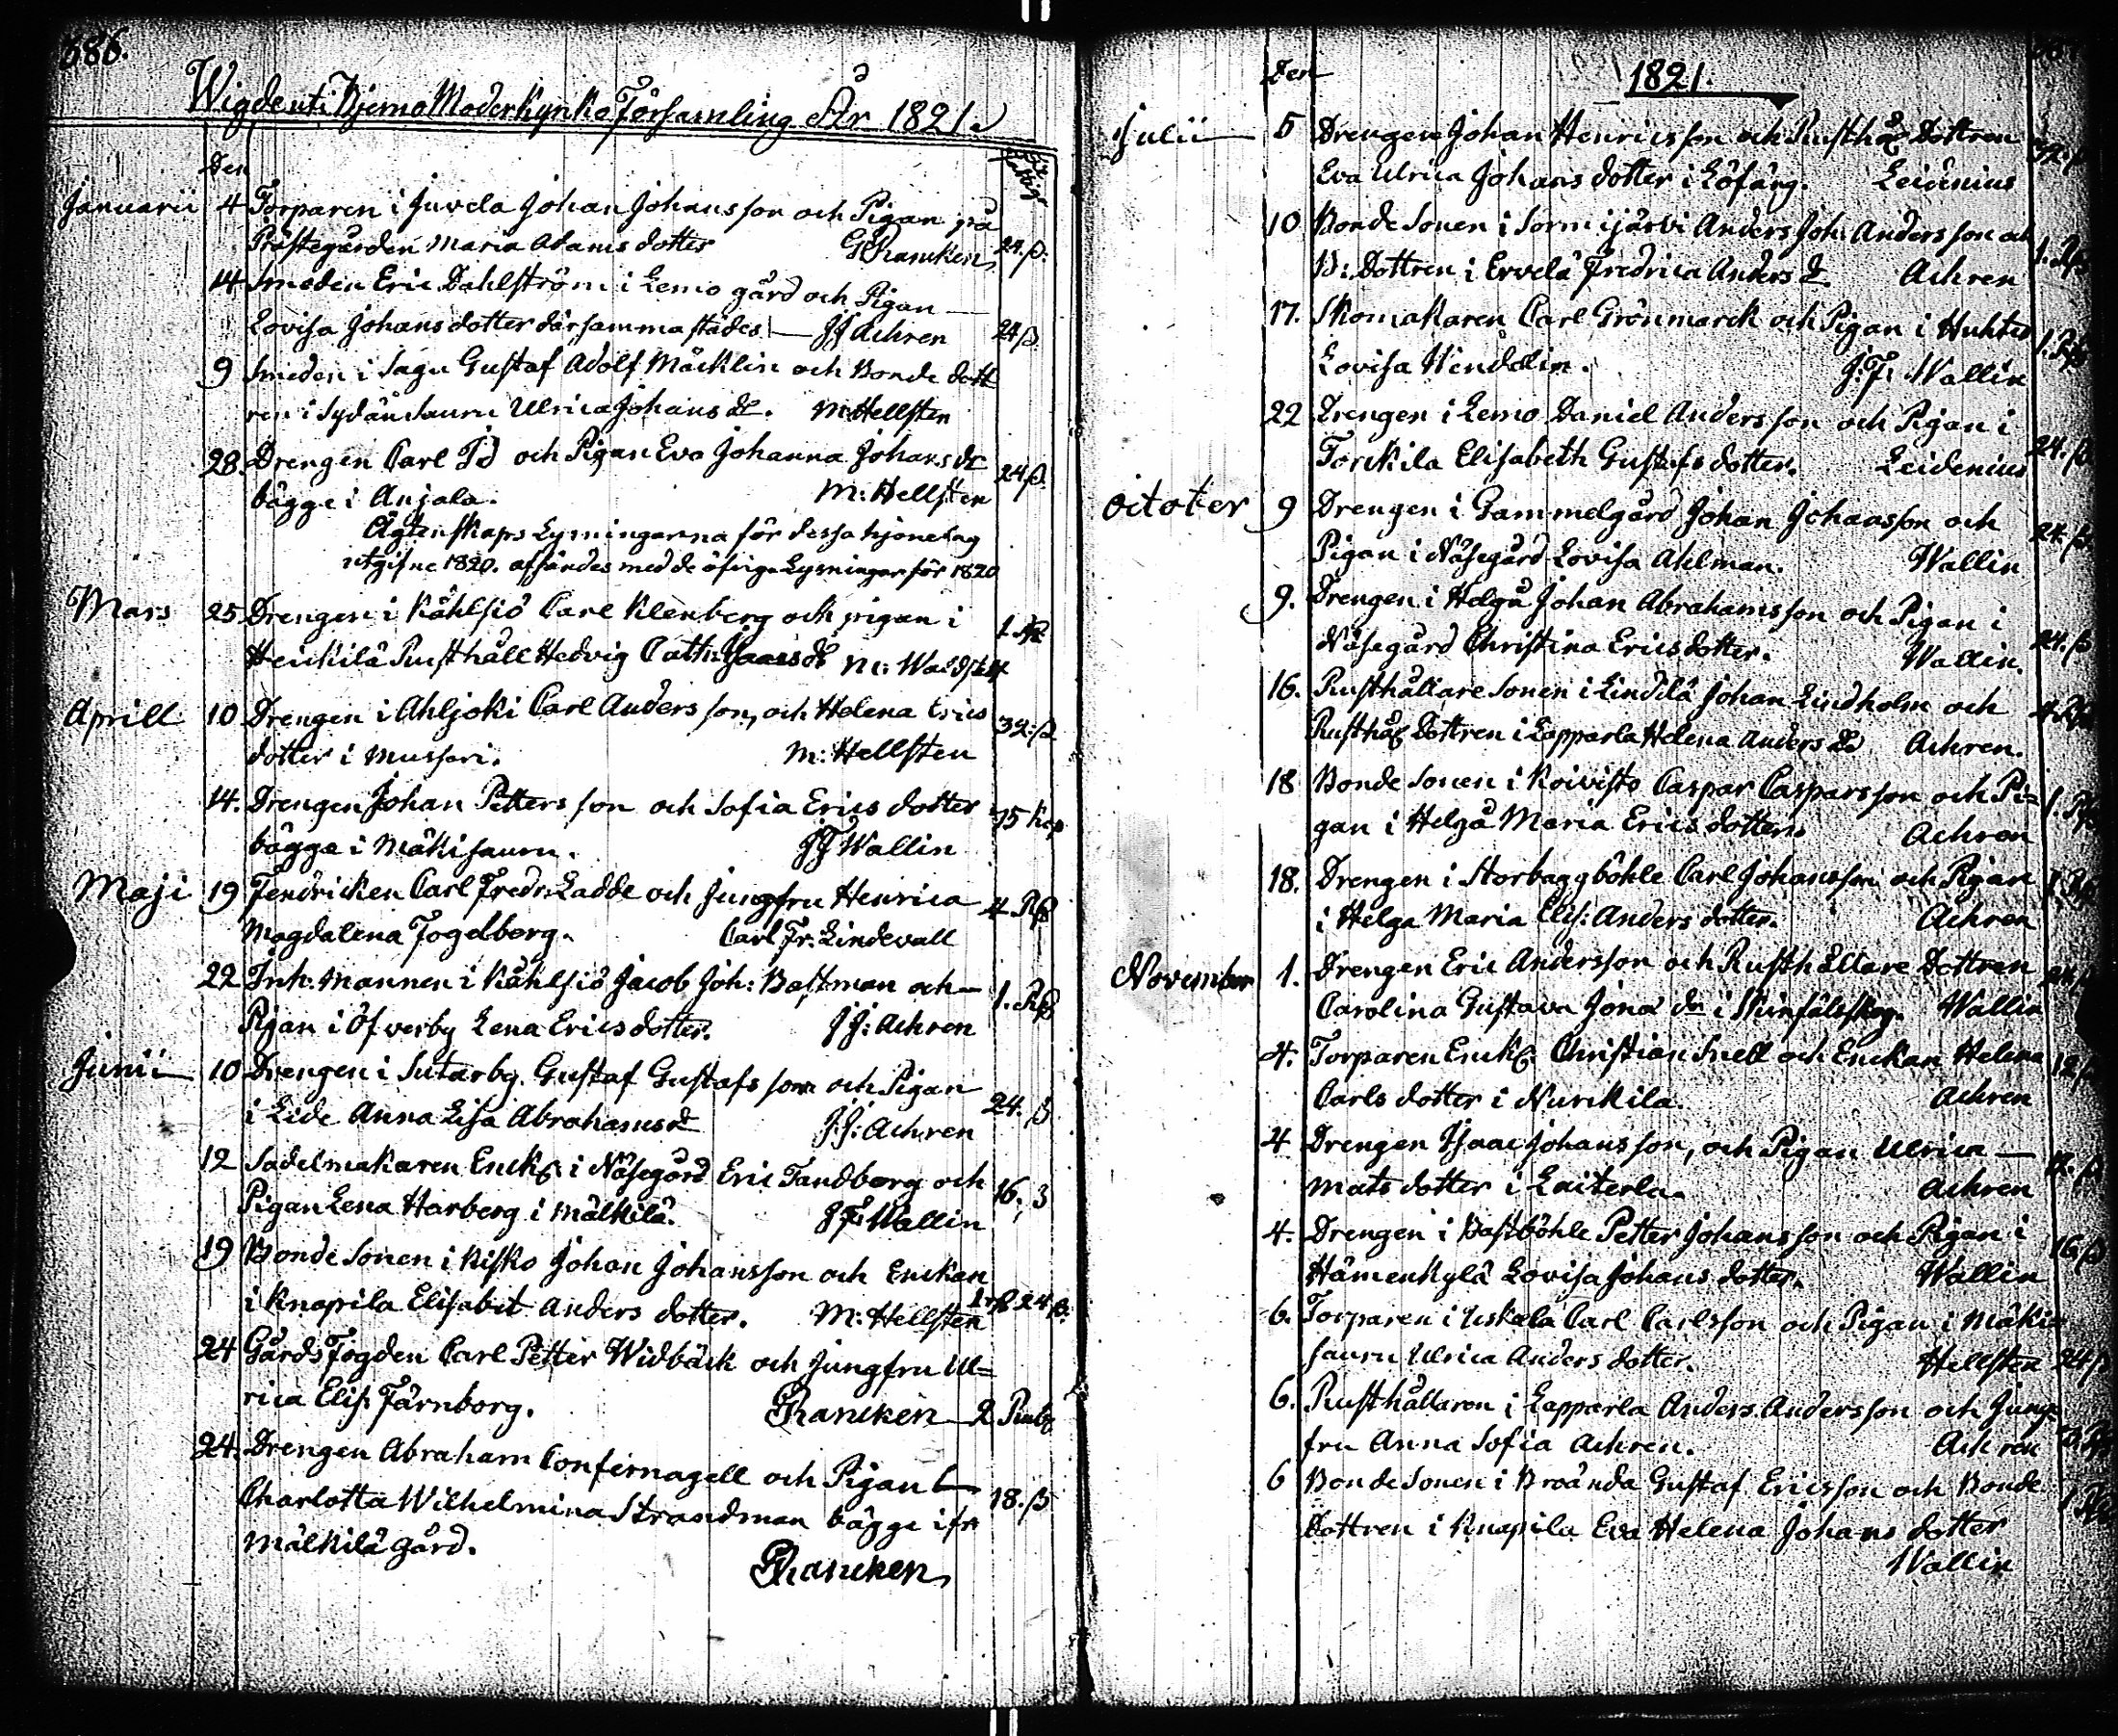 686.
Wigde uti Kjemo Moderkyrko Församling År 1821.
Den
Januarii 4 Torparen i Juvela Johan Johansson och Pigan på
Prästegården Maria Adams dotter G Rancken 24.β.
14 Smeden Eric Dahlström i Lemo gård och Pigan
Lovisa Johans dotter därsammastädes JJ Achren 24 β.
9 Smeden i Sagu Gustaf Adolf Mäcklin och Bonde dott
ren i Sydänsauru Ulrica Johans dr. M: Hellsten
28. Drengen Carl Id och Pigan Eva Johanna Johans dr 24 β.
bägge i Anjala. M: Hellsten
Ägtenskaps Lysningarna för dessa hjonelag
utgifne 1820. afsändes med de öfriga Lysningar för 1820
Mars 25 Drengen i Kåhlsiö Carl Klenberg och pigan i
Heickilä Rusthåll Hedvig Cath: Isaacs dr M: Waldst 1 Rβ
Aprill 10 Drengen i Ahljoki Carl Anders son, och Helena Erics 32:β
dotter i Mussari. M: Hellsten
14. Drengen Johan Petters son och Sofia Erics dotter 75 Kop
bägge i Mäkisauru. JF Wallin
Maji 19 Fendricken Carl Fredr: Ladde och Jungfru Henrica 4 Rβ
Magdalena Fogelberg. Carl Fr: Lindevall
22 Inh: Mannen i Kåhlsiö Jacob Joh: Bastman och 1. Rβ
Pigan i Öfverby Lena Erics dotter. JJ: Achren
Junii 10 Drengen i Sutarby. Gustaf Gustafs son och Pigan
i Lide Anna Lisa Abrahams dr JJ: Achren 24. β
12 Sadelmakaren Enckl: i Näsegård Eric Tandberg och
Pigan Lena Harberg i Mälkilä. J F: Wallin 16. β
19 Bonde Sonen i Kisko Johan Johansson och Enckan
i Knapila Elisabet Anders dotter. M: Hellsten 1 rβ 24 β.
24 Gårds Fogden Carl Petter Widbäck och Jungfru Ul=
rica Elis. Färnborg. GRancken 2 Rub:
24. Drengen Abraham Confirnagell och Pigan
Charlotta Wilhelmina Strandman bägge ifr 18. β
Mälkilä gård.
GRancken
Den 1821.
Julii 5 Drengen Johan Henricsson och Rusthål: Dottren
Eva Ulrica Johans dotter i Löfärg. Leidenius 32: β
10 Bonde Sonen i Sormijärvi Anders Joh: Andersson och
B: Dottren i Ervelä Fredrica Anders dr. Achren 1. Rβ
17. Skomakaren Carl Grönmarck och Pigan i Huhtis
Lovisa Wendelin. J: F: Wallin 1. Rβ
22 Drengen i Lemo Daniel Andersson och Pigan i
Torckila Elisabeth Gustafs dotter. Leidenius 24. β
October 9 Drengen i Gammelgård Johan Johansson och
Pigan i Näsegård Lovisa Ahlman. Wallin 24. β
9. Drengen i Helgå Johan Abrahamsson och Pigan i
Näsegård Christina Erics dotter. Wallin. 24. β
16. Rusthållare Sonen i Lindilä Johan Lindholm och
Rusthål: Dottren i Lapparla Helena Anders dr Achren. 4 Rβ
18 Bonde Sonen i Koivisto Caspar Casparsson och Pi=
gan i Helgå Maria Erics dotter. Achren 1. Rβ
18. Drengen i Storbaggböhle Carl Johansson och Pigan
i Helga Maria Elis: Anders dotter. Achren 1 Rβ
November 1. Drengen Eric Andersson och Rusthållare Dottren
Carolina Gustava Jona dr i Skinfälskog. Wallin 24 β
4. Torparen Enckl: Christian Snell och Enckan Helena
Carls dotter i Nurckila. Achren 12 β
4 Drengen Isaac Johansson, och Pigan Ulrica
Mats dotter i Laiterla. Achren 12. β
4. Drengen i Bastböhle Petter Johansson och Pigan i
Hämenkylä Lovisa Johans dotter. Wallin 16 β
6. Torparen i Uskela Carl Carlsson och Pigan i Mäki=
sauru Ulrica Anders dotter. Hellsten 24 β
6. Rusthållaren i Lapparla Anders Andersson och Jung=
fru Anna Sofia Achren. Achren
6 Bonde Sonen i Broända Gustaf Ericsson och Bonde
Dottren i Knapila Eva Helena Johans dotter 1 Rβ
Wallin